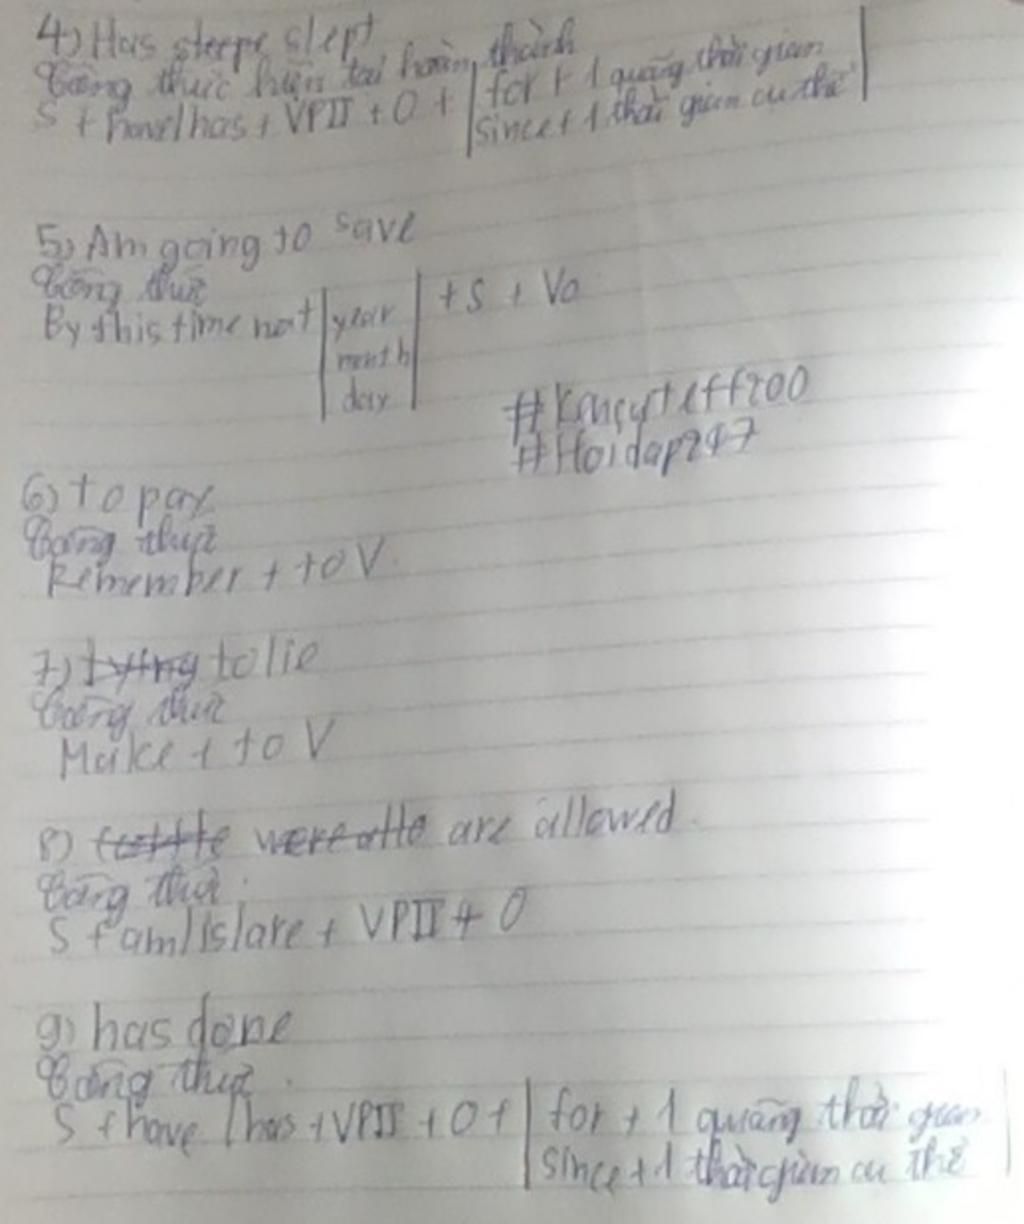 4) Has slept
Công thức hiện tại hoàn thành
S + have/has + VPII + O + | for + 1 quãng thời gian
since + 1 thời gian cụ thể
5) Am going to save
Công thức
By this time next | year | + S + Vo
month
day
#Hoidap247
6) to pay
Công thức
Remember + to V
7) tying to lie
Công thức
Make + to V
8) are allowed
Công thức
S + am/is/are + VPII + O
9) has done
Công thức
S + have/has + VPII + O + | for + 1 quãng thời gian
since + 1 thời gian cụ thể